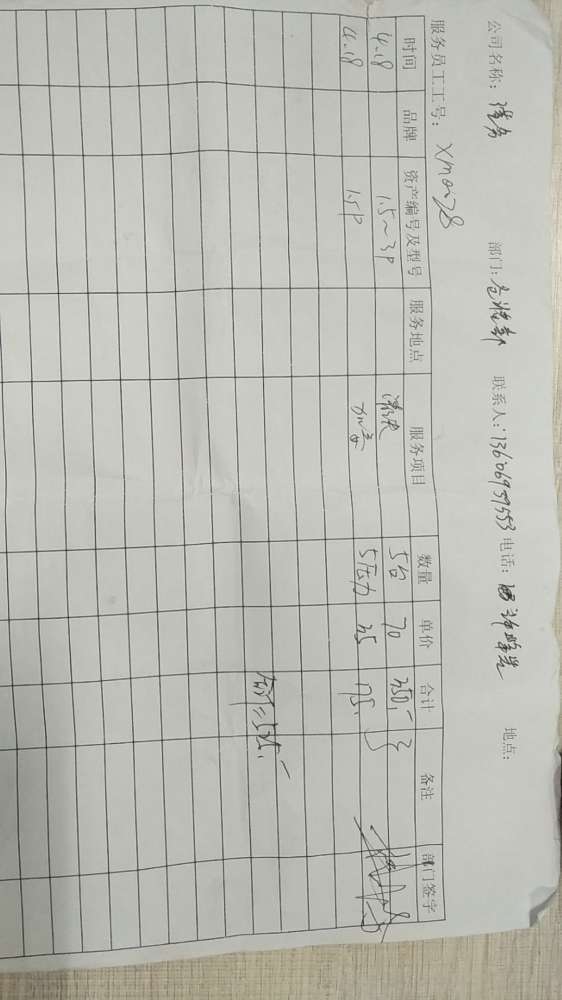 公司名称： 部门： 联系人：13606939553 电话： 地点：
服务员工工号：XM0178
时间 品牌 资产编号及型号 服务地点 服务项目 数量 单价 合计 备注 部门签字
4.18 1.5~3P 清洗 5台 70 350.-
4.18 1.5P 加氟 5压力 35 175.
合计：525.-